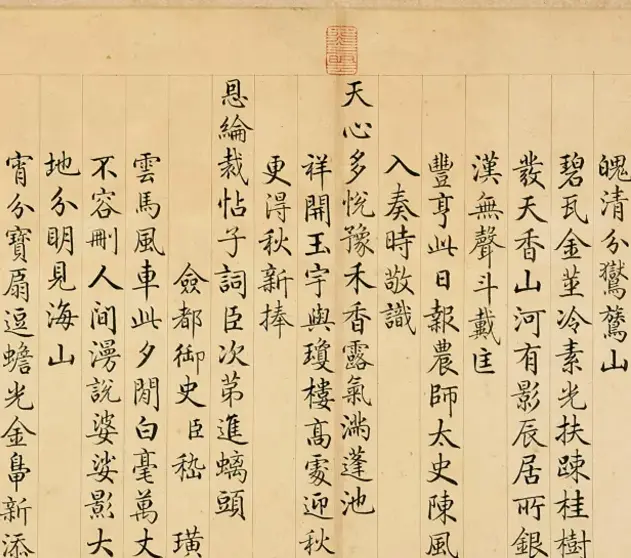 魄清分嶽鷲山
碧瓦金莖冷素光扶踈桂樹
發天香山河有影辰居所銀
漢無聲斗戴匡
豐亨此日報農師太史陳風
入奏時敬識
天心多悅豫禾香露氣滿蓬池
祥開玉宇與瓊樓高處迎秋
更得秋新捧
恩綸裁帖子詞臣次第進螭頭
僉都御史臣嵇璜
雲馬風車此夕閒白毫萬丈
不容刪人間漫說婆娑影大
地分明見海山
宵分寶扇逗蟾光金鼻新添